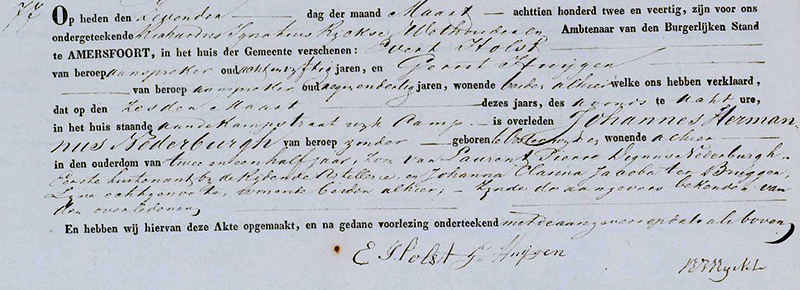 Op heden den Zevenden dag der maand Maart achttien honderd twee en veertig, zijn voor ons
ondergeteekende Ignatius Wethouder en Ambtenaar van den Burgerlijken Stand
te AMERSFOORT, in het huis der Gemeente verschenen: Evert Holst
van beroep aanspreker oud jaren, en Gerrit Huijgen
van beroep aanspreker oud jaren, wonende beiden alhier welke ons hebben verklaard,
dat op den Zesden Maart dezes jaars, des avonds te acht ure,
in het huis staande aan de Kampstraat wijk Camp is overleden Johannes Herman-
nus Nederburgh van beroep zonder geboren te wonende alhier
in den ouderdom van twee en een half jaar, Zoon van Laurent Pierre Nederburgh
Eerste luitenant bij de Rijdende Artillerie, en Johanna Clasina Jacoba ter Bruggen,
Zijne echtgenoote, wonende beiden alhier, Zijnde de aangevers bekenden van
den overledenen
En hebben wij hiervan deze Akte opgemaakt, en na gedane voorlezing onderteekend met de aangevers op dato als boven
E Holst G Huijgen